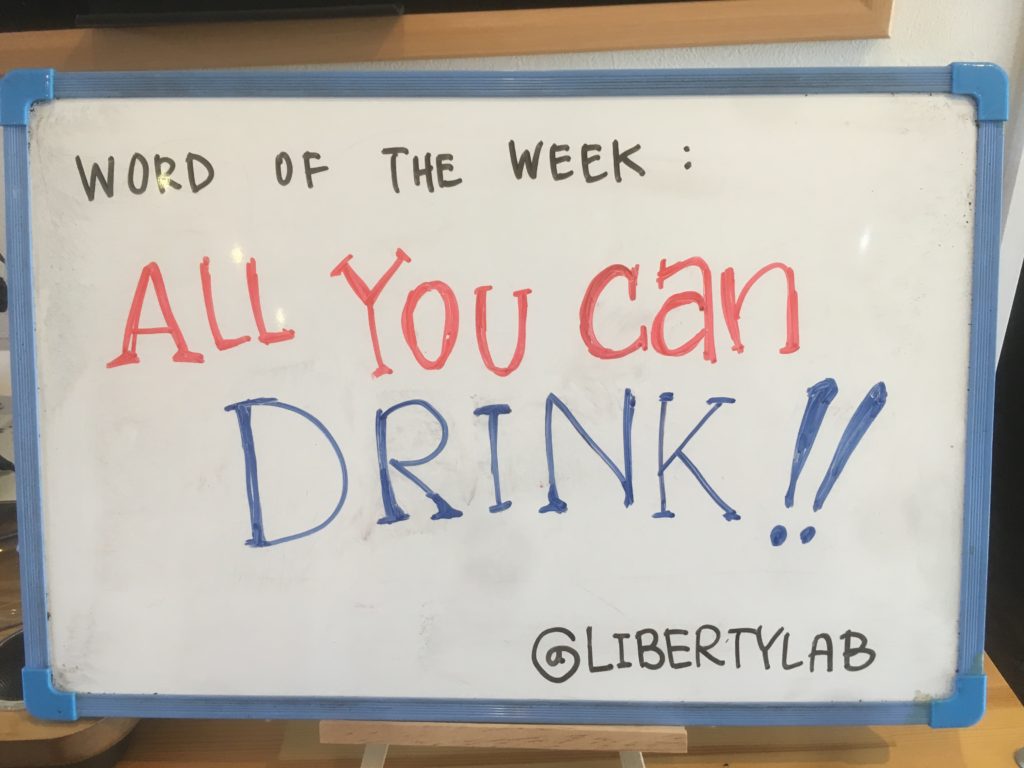 WORD OF THE WEEK:
ALL YOU can
DRINK!!
@LIBERTYLAB